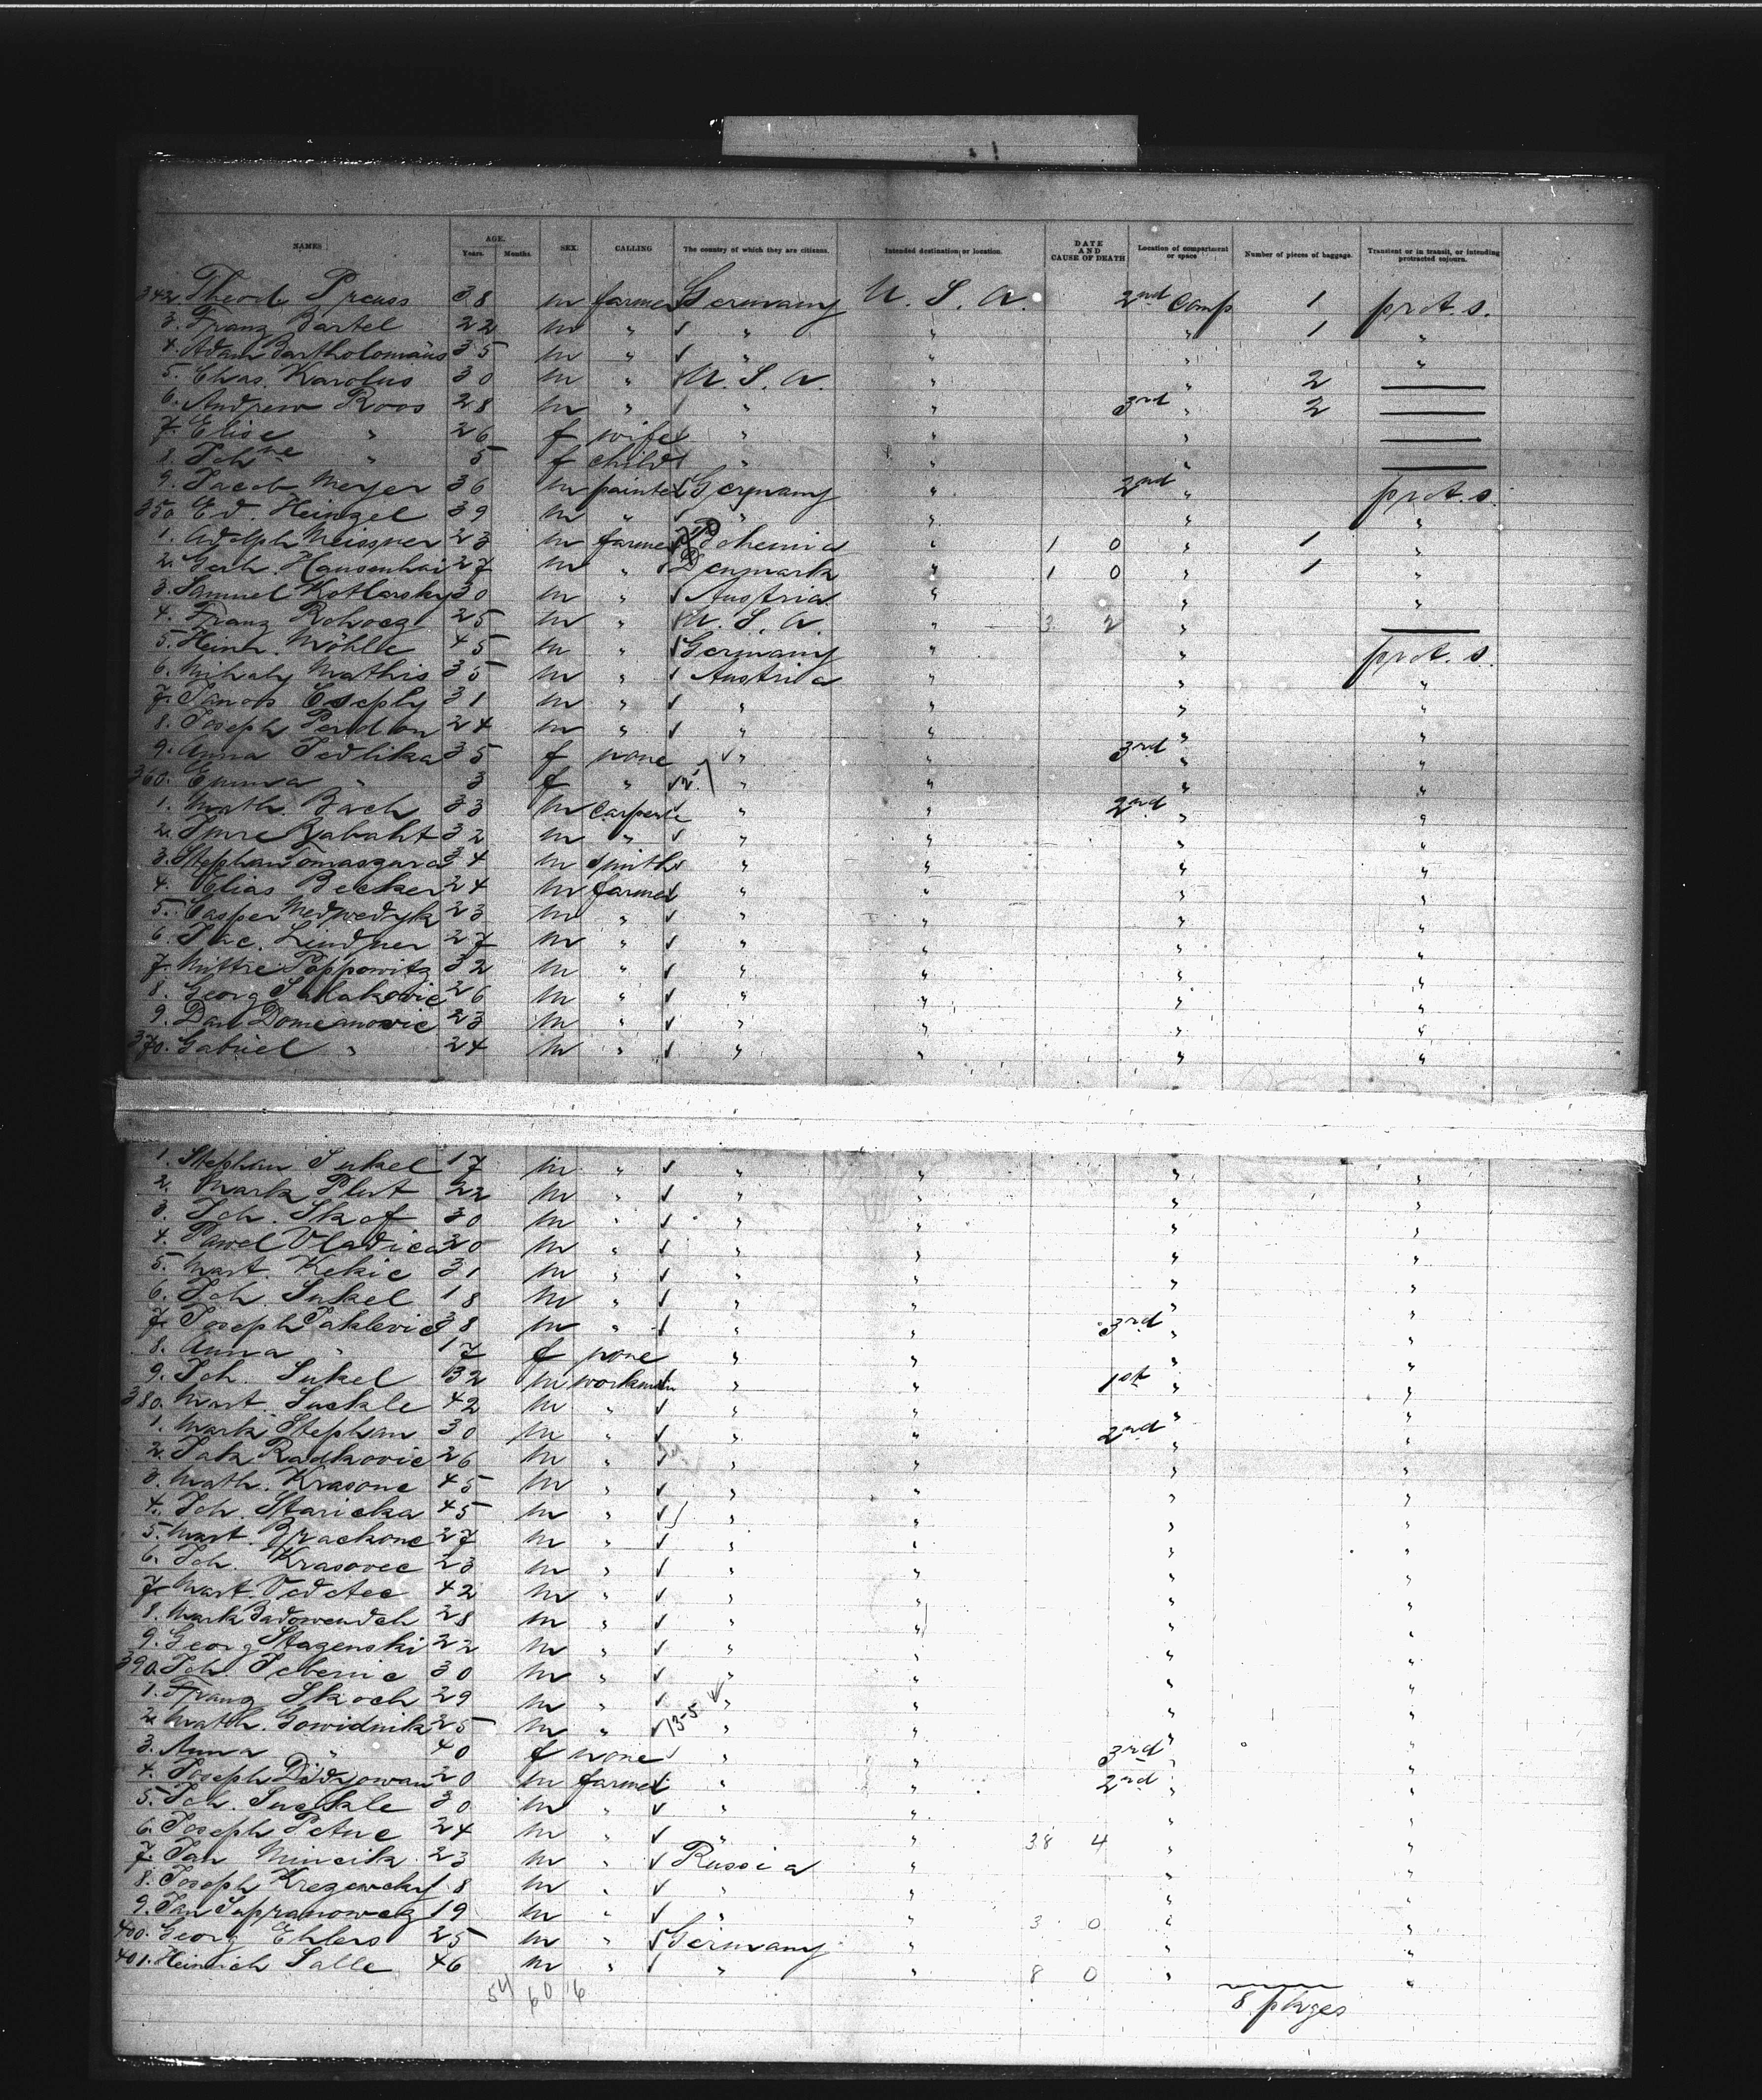 NAMES AGE. Years. Months. SEX. CALLING The country of which they are citizens. Intended destination or location. DATE AND CAUSE OF DEATH Location of compartment or space Number of pieces of baggage. Transient or in transit, or intending protracted sojourn.
342 Theod. Preuss 38 m farmer Germany U. S. A. 2nd Comp 1 prot. s.
3. Franz Bartel 22 m " " " " 1 "
4. Adam Bartholomäus 35 m " " " " "
5. Chas. Karolus 30 m " U. S. A. " " 2 —
6. Andrew Roos 28 m " " " 3rd " 2 —
7. Elise " 26 f wife " " " —
8. Johne " 5 f child " " " —
9. Jacob Meyer 36 m painter Germany " 2nd " prot. s
350 Ed. Heinzel 39 m " " " " "
1. Adolph Meissner 23 m farmer Bohemia " 1 0 " 1 "
2. Gerh. Hansenhai 27 m " Denmark " 1 0 " 1 "
3. Samuel Kotlarsky 30 m " Austria " " "
4. Franz 25 m " U. S. A. " 3 2 " —
5. Heinr. Möhlle 45 m " Germany " " prot. s.
6. Mihaly Mathis 35 m " Austria " " "
7. Janos 31 m " " " " "
8. Joseph 24 m " " " " "
9. Anna Jedlika 35 f none " " 3rd " "
360. Emma " 3 f " " " " "
1. Math. Bach 33 m Carpente " " 2nd " "
2. Imre 32 m " " " " "
3. Stephan 34 m smith " " " "
4. Elias Becker 24 m farmer " " " "
5. Casper Medwedyk 23 m " " " " "
6. Jac. Lindner 27 m " " " " "
7. Mittre Poppowitz 32 m " " " " "
8. Georg 26 m " " " " "
9. Dan Domeanovic 23 m " " " " "
370. Gabriel " 24 m " " " " "
1. Stephan Sukel 17 m " " " " "
2. Mark Plut 22 m " " " " "
3. Joh. Skof 30 m " " " " "
4. Pawel Vladica 20 m " " " " "
5. Mart. Kekic 31 m " " " " "
6. Joh. Sukel 18 m " " " " "
7. Joseph Jaklevic 38 m " " " 3rd " "
8. Anna " 17 f none " " " "
9. Joh. Sukel 32 m workman " " 1st " "
380. Mart. Suckle 42 m " " " " "
1. Mark Stephan 30 m " " " 2nd " "
2. Jak Radkovic 26 m " " " " "
3. Math. Krasonc 45 m " " " " "
4. Joh. Staricka 45 m " " " " "
5. Mart. 27 m " " " " "
6. Joh. Krasovec 23 m " " " " "
7. Mart. 42 m " " " " "
8. Mark 28 m " " " " "
9. Georg Stazenski 22 m " " " " "
390. Joh. 30 m " " " " "
1. Franz Skoch 29 m " " " " "
2. Math. Gowidnik 25 m " 135 " " " "
3. Anna " 40 f none " " 3rd " "
4. Joseph 20 m farmer " " 2nd " "
5. Joh. Suckle 30 m " " " " "
6. Joseph 24 m " " " 38 4 " "
7. Jan Mincik 23 m " Russia " " "
8. Joseph 18 m " " " " "
9. Jan 19 m " " " 3 0 " "
400. Georg Ehlers 25 m " Germany " " "
401. Heinrich Salle 46 m " " " 8 0 " "
54 60 16
8 pkges